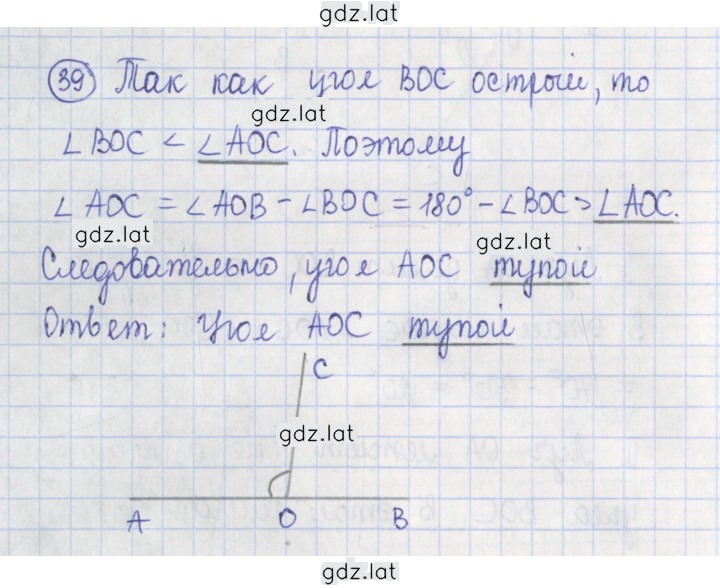 gdz.lat
39 Так как угол BOC острый, то
gdz.lat
∠BOC < ∠AOC. Поэтому
∠AOC = ∠AOB - ∠BOC = 180° - ∠BOC > ∠AOC.
gdz.lat gdz.lat
Следовательно, угол AOC тупой
Ответ: Угол AOC тупой
C
gdz.lat
A O B
gdz.lat